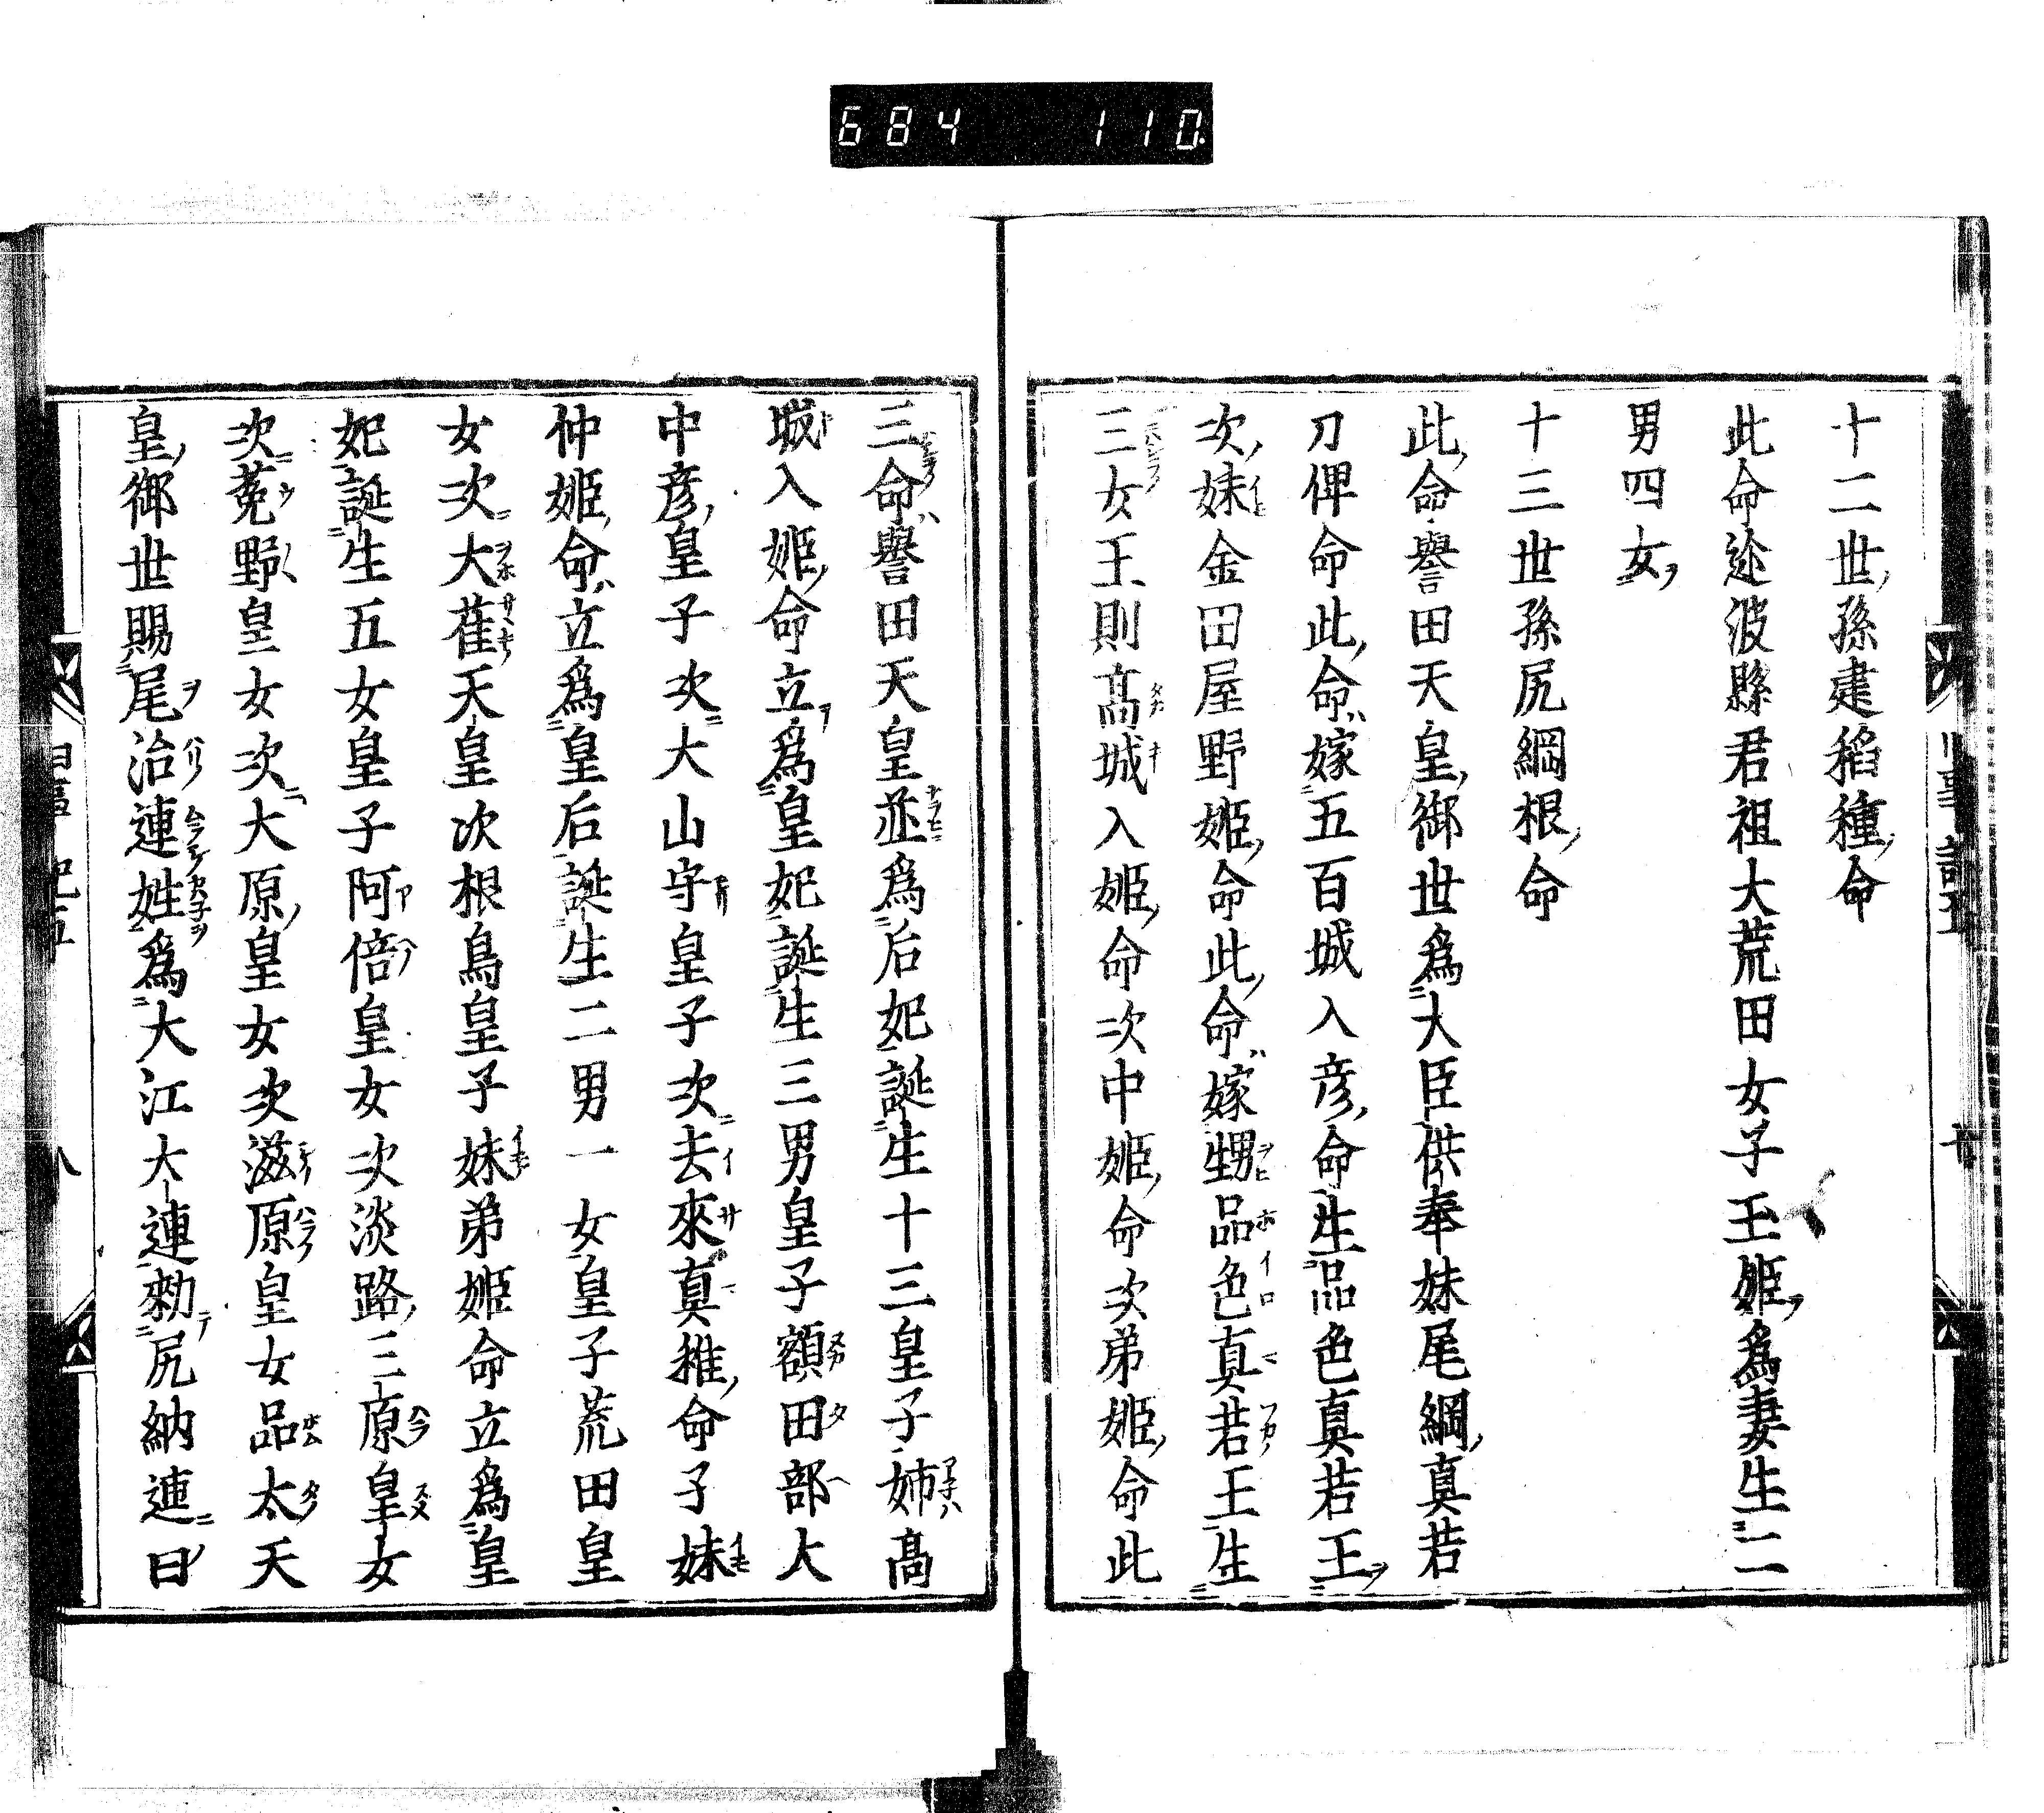 684 110
十二世孫建稻種命
此命迩波縣君祖大荒田女子玉姫爲妻生二
男四女
十三世孫尻綱根命
此命譽田天皇御世爲大臣供奉妹尾綱真若
刀俾命此命嫁五百城入彦命生品色真若王
次妹金田屋野姫命此命嫁甥品色真若王生
三女王則髙城入姫命次中姫命次弟姫命此
三命譽田天皇並爲后妃誕生十三皇子姉髙
城入姫命立爲皇妃誕生三男皇子額田部大
中彦皇子次大山守皇子次去來真稚命子妹
仲姫命立爲皇后誕生二男一女皇子荒田皇
女次大雀天皇次根鳥皇子妹弟姫命立爲皇
妃誕生五女皇子阿倍皇女次淡路三原皇女
次菟野皇女次大原皇女次滋原皇女品太天
皇御世賜尾治連姓爲大江大連勅尻納連曰